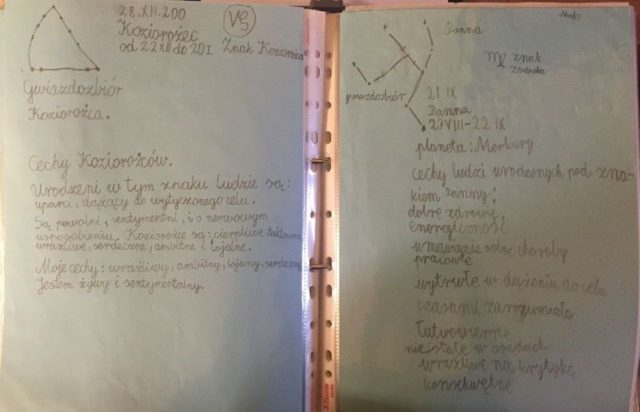 28.XII.200
Koziorożec
od 22 XII do 20 I Znak Koziorożca
Gwiazdozbiór
Koziorożca.
Cechy Koziorożców.
Urodzeni w tym znaku ludzie są:
uparci, dążący do wytyczonego celu.
Są powolni, sentymentni, i o nerwowym
usposobieniu. Koziorożce są: cierpliwe taktowne
wrażliwe, serdeczne, ambitne i lojalne.
Moje cechy: wrażliwy, ambitny, lojany, serdeczny
Jestem żywy i sentymentalny.
Panna
znak
zodiaku
gwiazdozbiór
21 IX
Panna
23 VIII-22 IX
planeta: Merkury
cechy ludzi urodzonych pod zna-
kiem Panny:
dobre zdrowie
energiczności
wmawianie sobie choroby
pracowite
wytrwałe w dążeniu do celu
czasami zarozumiałe
łatwowierne
nie stałe w osądach
wrażliwe na krytykę
konsekwetne